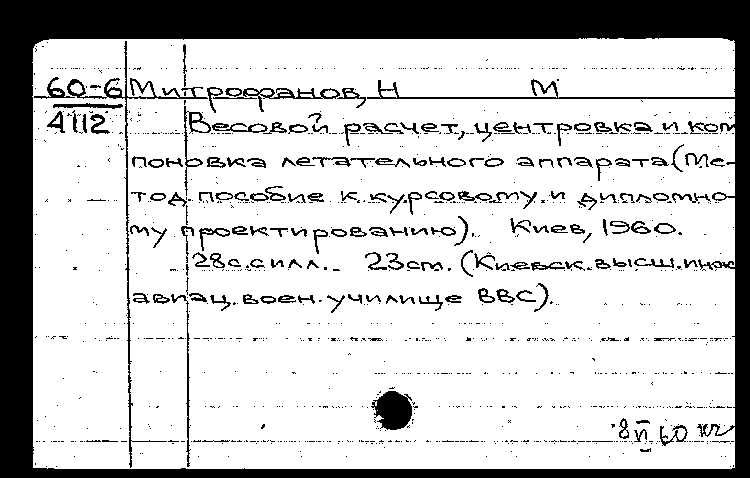 60-6 Митрофанов, Н М
4112 Весовой расчет, центровка и ком
поновка летательного аппарата (Ме-
тод. пособие к курсовому и дипломно-
му проектированию). Киев, 1960.
28с. силл. 23см. (Киевск. высш. инж
авиац. воен. училище ВВС).
8 VI 60